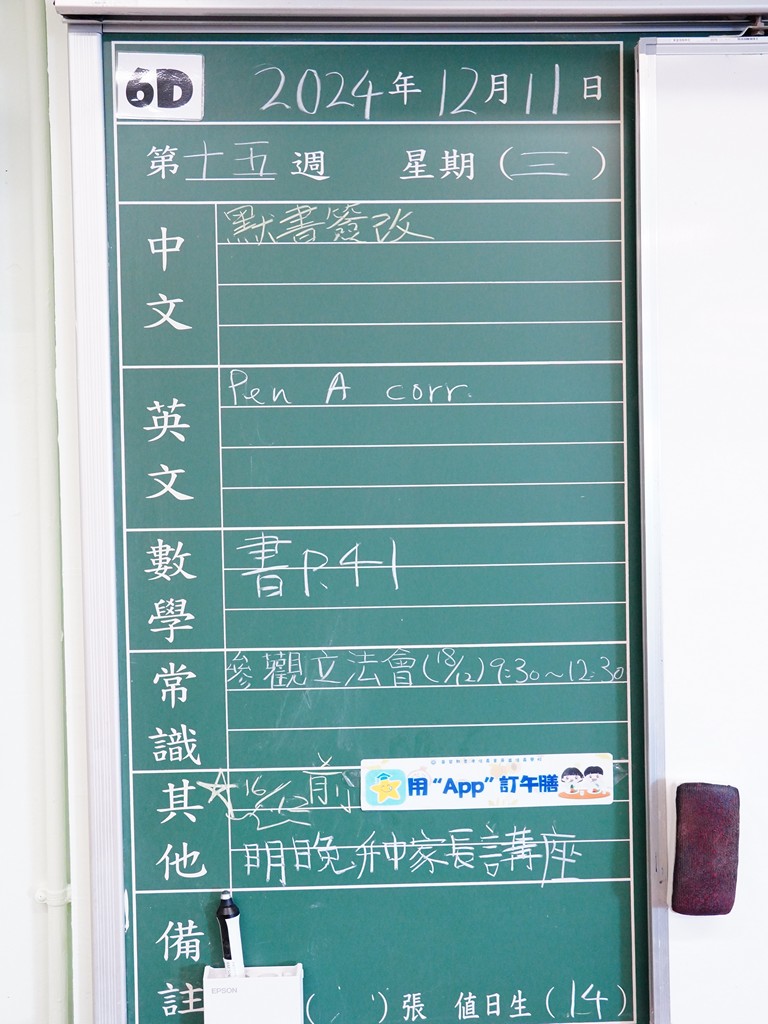 6D 2024年12月11日
第十五週 星期(三)
中文 默書簽改
英文 Pen A corr.
數學 書P.41
常識 參觀立法會(18/12)9:30~12:30
其他 ☆16/12前
用“App”訂午膳
明晚升中家長講座
備註
EPSON
( )張 值日生(14)